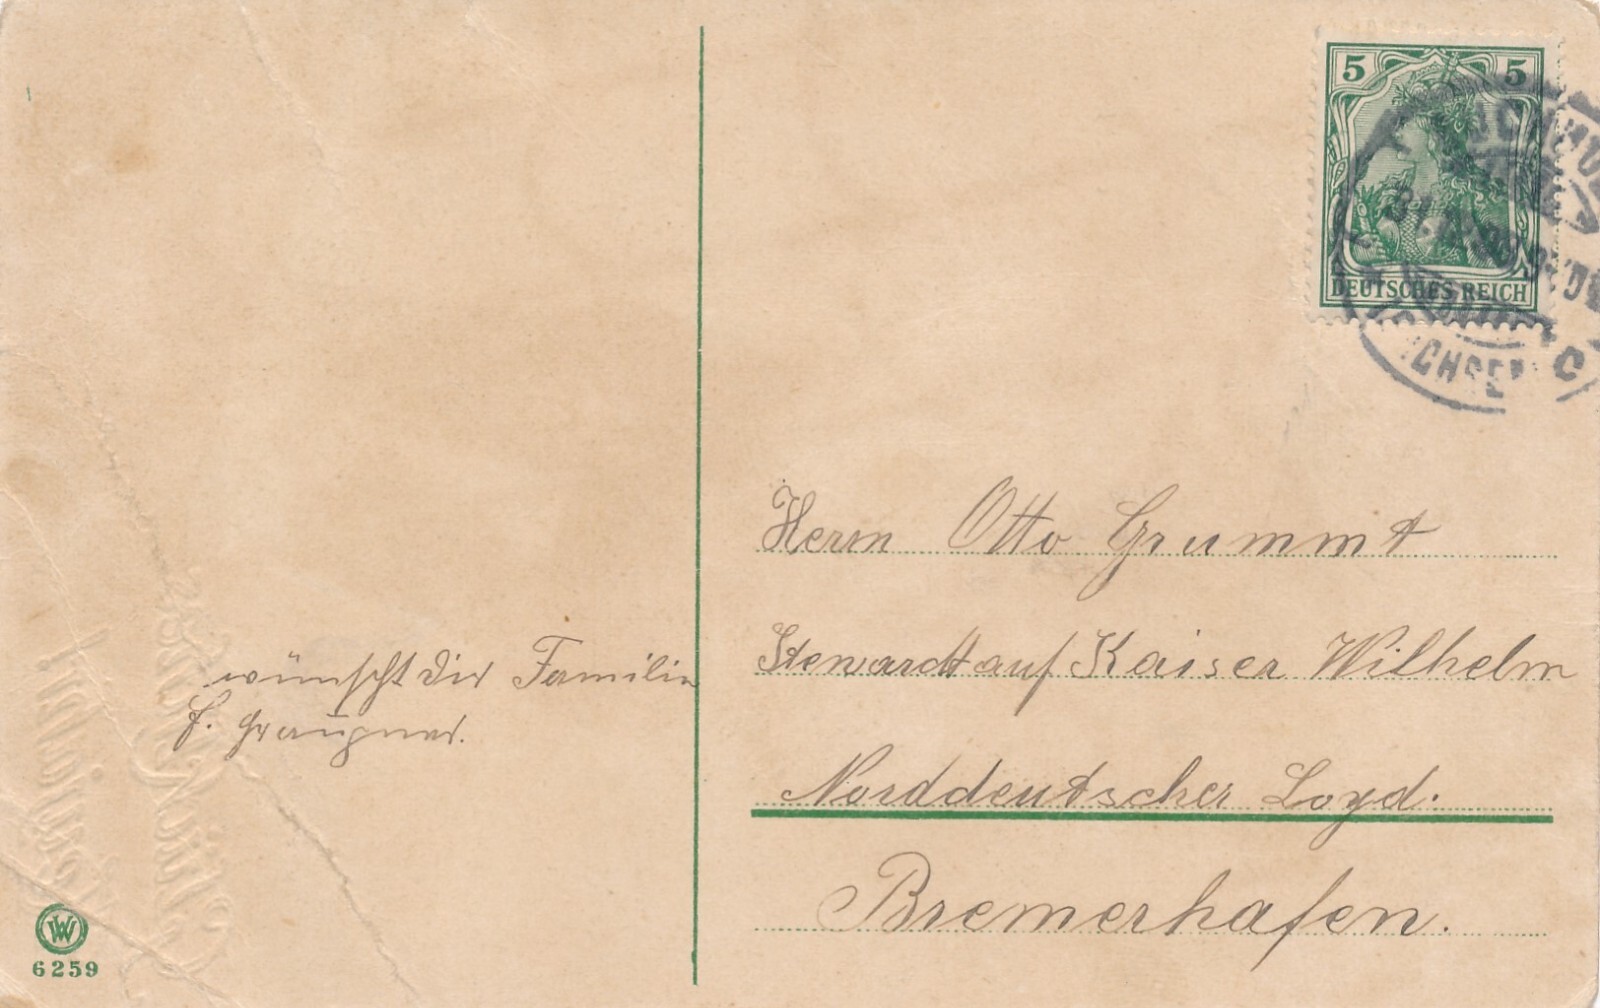 5 5
DEUTSCHES REICH
Herrn Otto Grummt
Stewardt auf Kaiser Wilhelm
Norddeutscher Loyd.
Bremerhafen.
wünscht dir Familie
F. Graupner.
W
6259